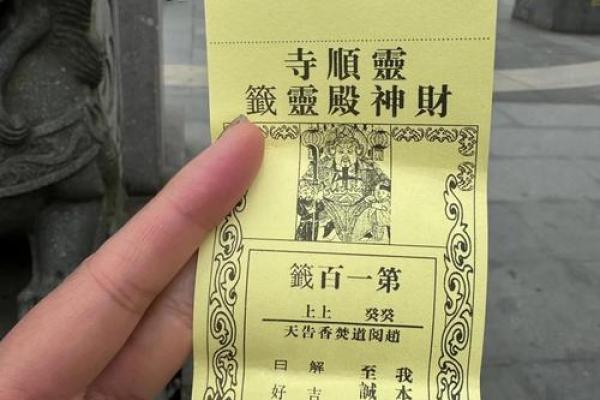 靈順寺
財神殿靈籤
第一百籤
癸癸 上上
趙閱道焚香告天
我本
至誠
解吉
曰好